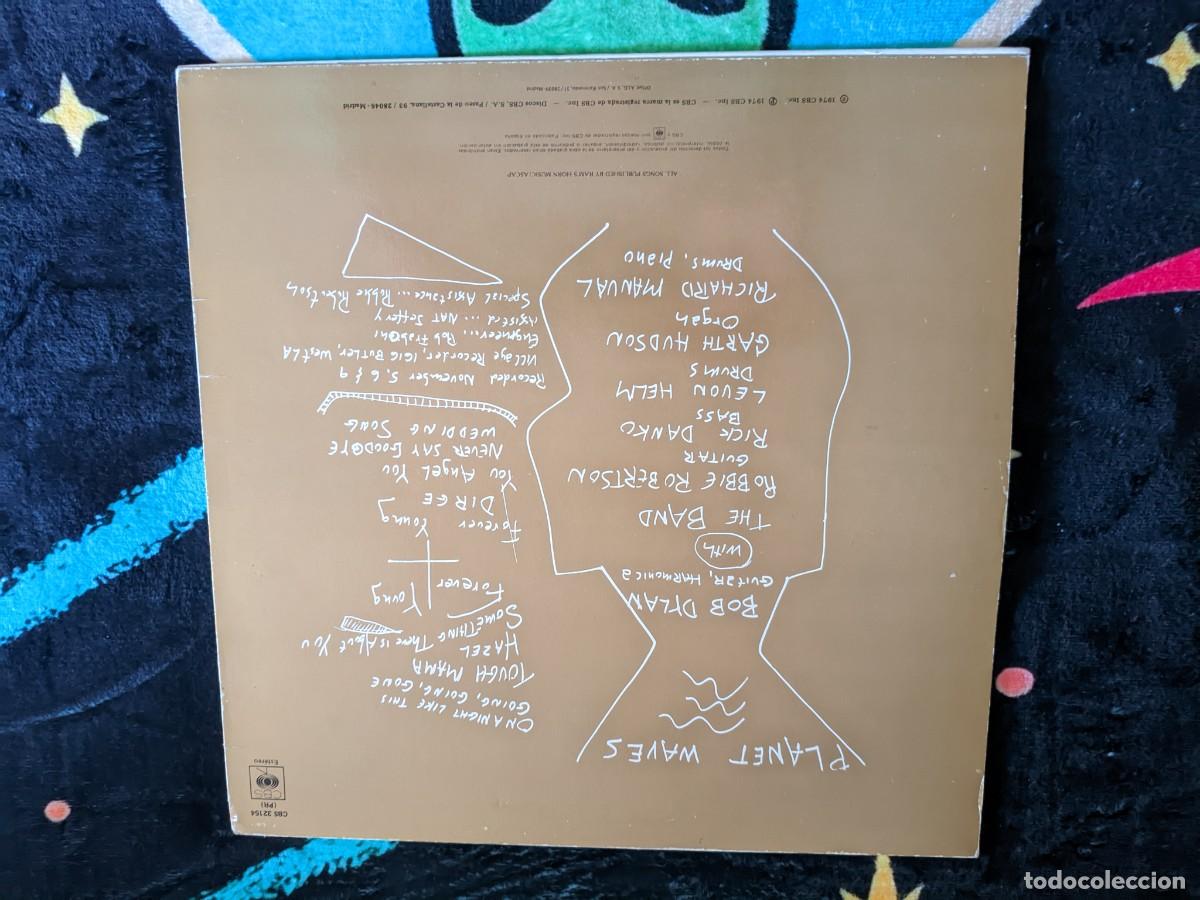 PLANET WAVES
BOB DYLAN
GUITAR, HARMONICA
WITH
THE BAND
ROBBIE ROBERTSON
GUITAR
RICK DANKO
BASS
LEVON HELM
DRUMS
GARTH HUDSON
Organ
RICHARD MANUAL
DRUMS, Piano
CBS 32154
(PR)
CBS
Estéreo
ON A NIGHT LIKE THIS
GOING, GOING, GONE
TOUGH MAMA
HAZEL
SOMETHING There is About You
Forever
Young
Forever
Young
DIRGE
You Angel You
NEVER SAY GOODBYE
WEDDING SONG
Recorded November 5, 6 & 9
Village Recorder, 1616 BUTLER, West LA
Engineer... Rob Fraboni
Assisted ... NAT Jeffery
Special Assistance... Robbie Robertson
ALL SONGS PUBLISHED BY RAM'S HORN MUSIC/ASCAP
Ⓒ 1974 CBS Inc. Ⓟ 1974 CBS Inc. — CBS es la marca registrada de CBS Inc. — Discos CBS, S.A. / Paseo de la Castellana, 93 / 28046-Madrid
todocoleccion